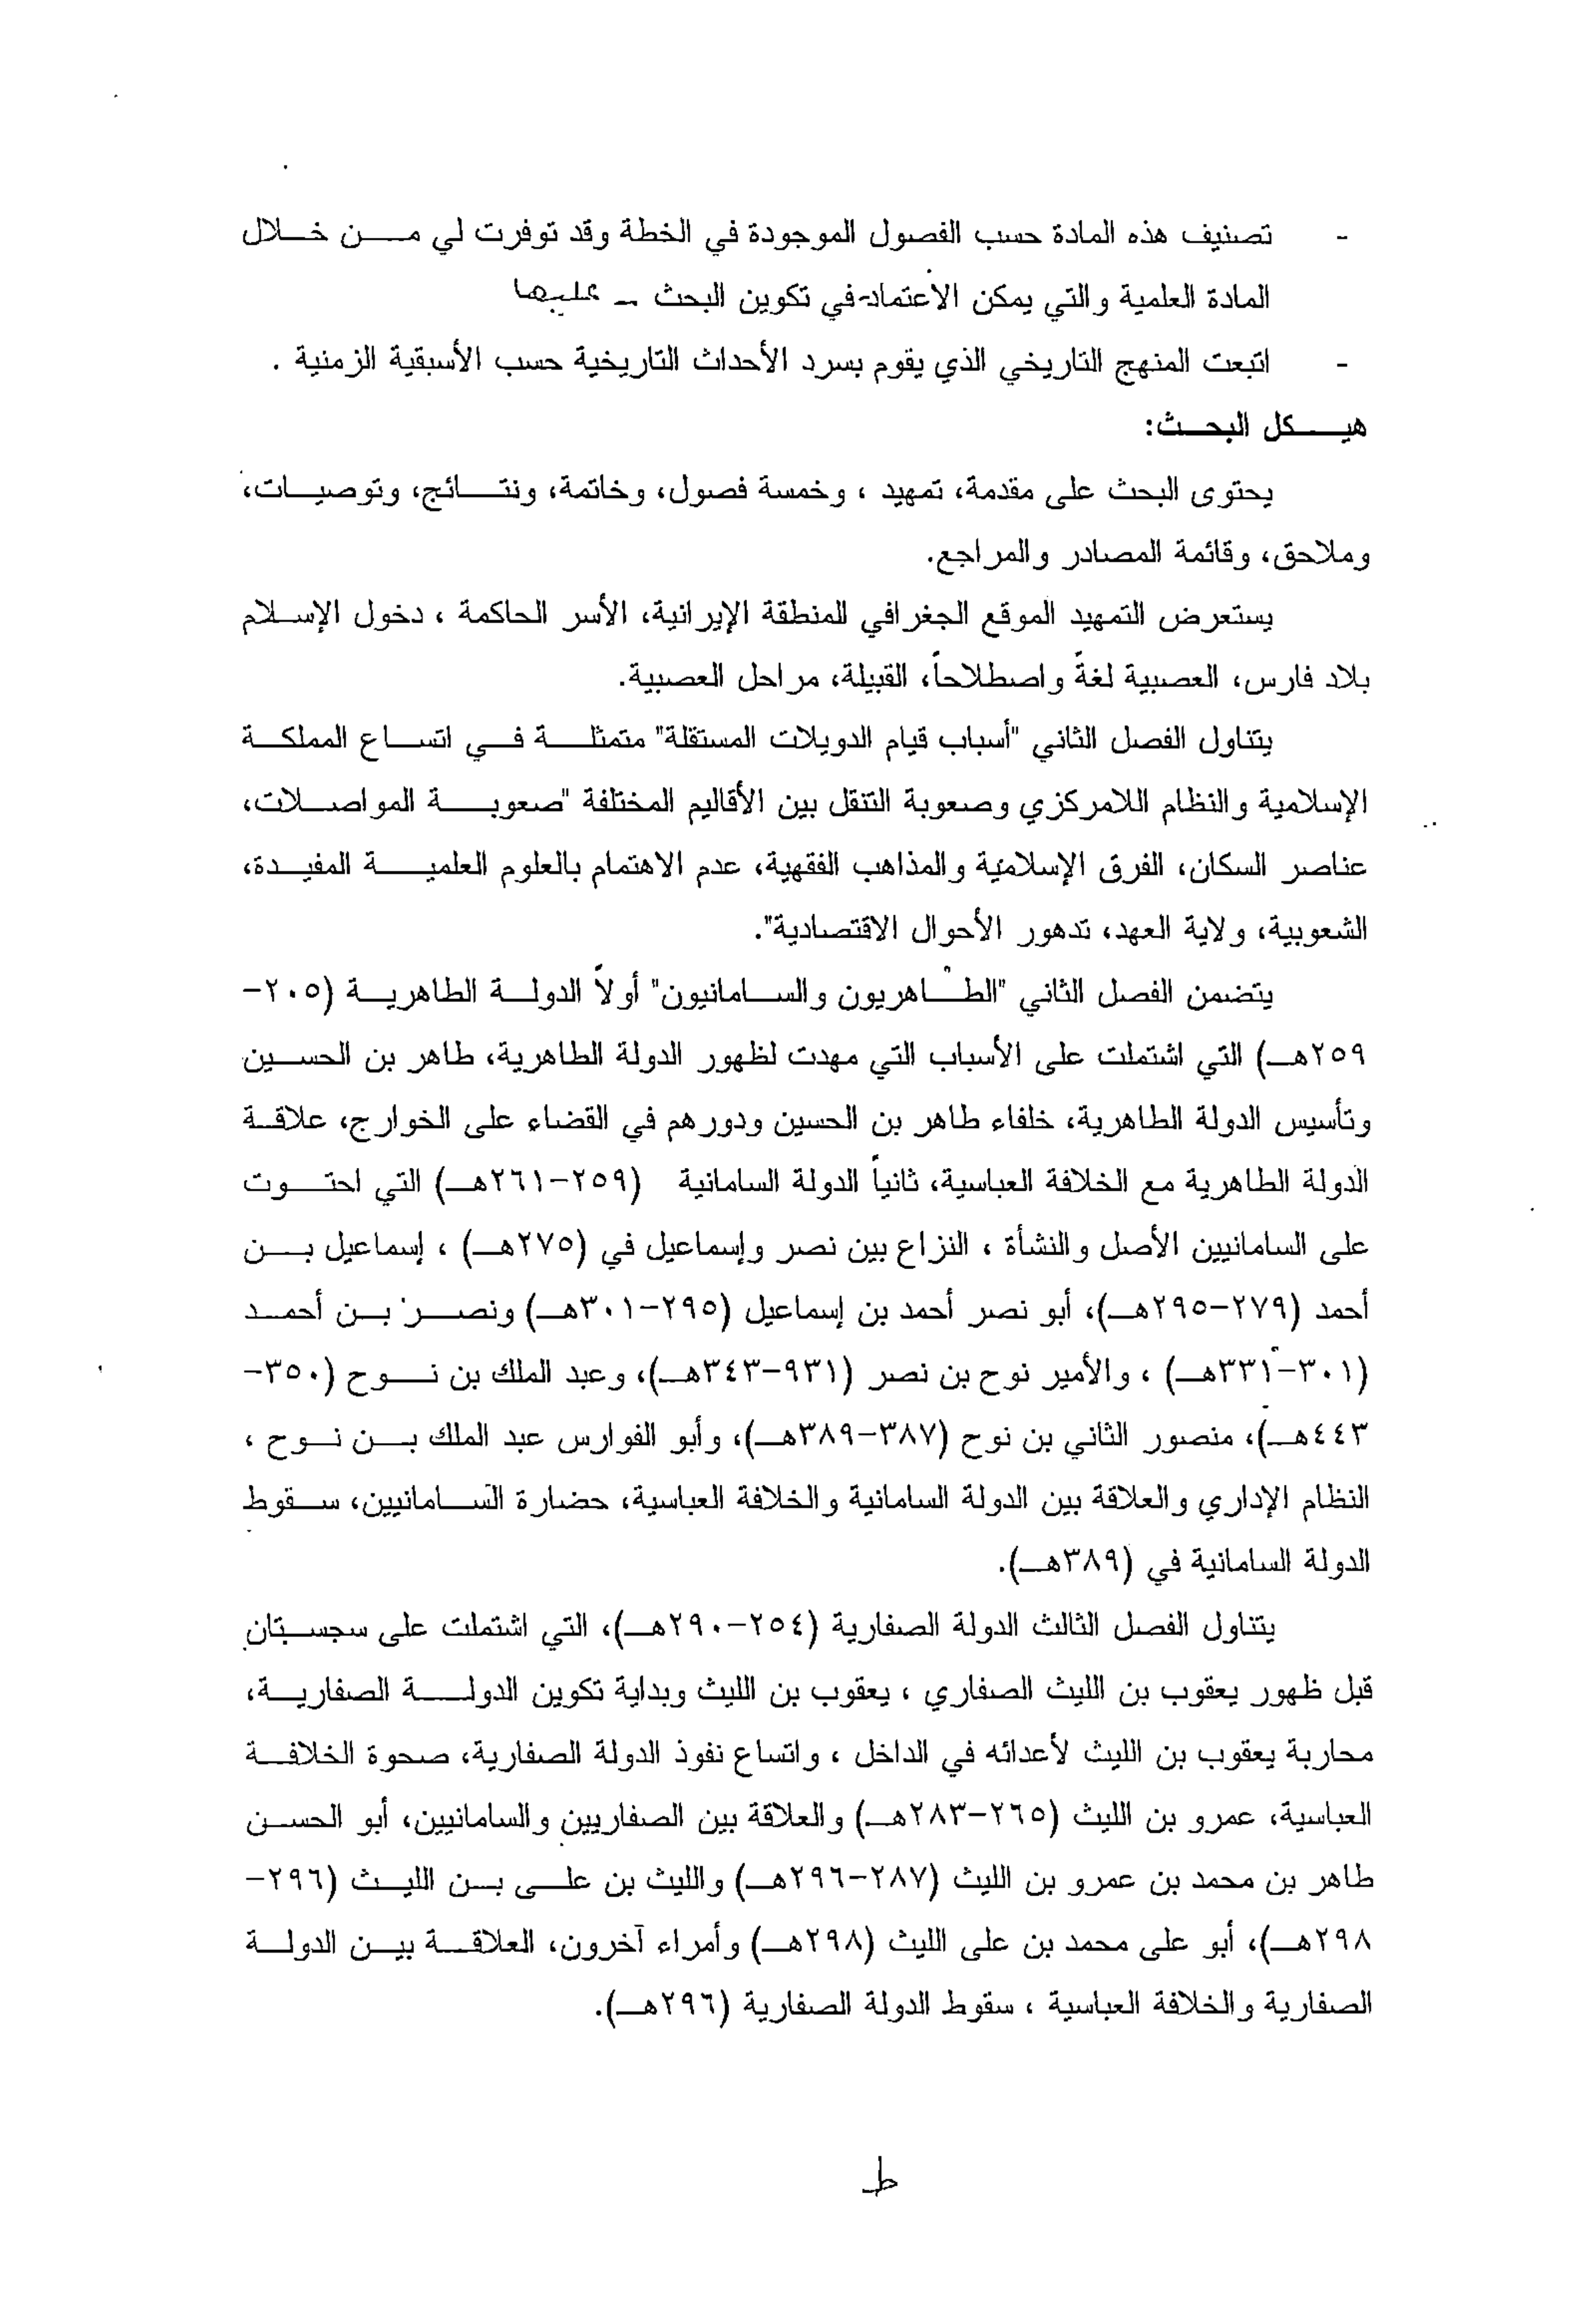 - تصنيف هذه المادة حسب الفصول الموجودة في الخطة وقد توفرت لي من خلال
المادة العلمية والتي يمكن الأعتماد في تكوين البحث - عليها
- اتبعت المنهج التاريخي الذي يقوم بسرد الأحداث التاريخية حسب الأسبقية الزمنية .
هيكل البحث:
يحتوى البحث على مقدمة، تمهيد ، وخمسة فصول، وخاتمة، ونتائج، وتوصيات،
وملاحق، وقائمة المصادر والمراجع.
يستعرض التمهيد الموقع الجغرافي للمنطقة الإيرانية، الأسر الحاكمة ، دخول الإسلام
بلاد فارس، العصبية لغةً واصطلاحاً، القبيلة، مراحل العصبية.
يتناول الفصل الثاني "أسباب قيام الدويلات المستقلة" متمثلة في اتساع المملكة
الإسلامية والنظام اللامركزي وصعوبة التنقل بين الأقاليم المختلفة "صعوبة المواصلات،
عناصر السكان، الفرق الإسلامية والمذاهب الفقهية، عدم الاهتمام بالعلوم العلمية المفيدة،
الشعوبية، ولاية العهد، تدهور الأحوال الاقتصادية".
يتضمن الفصل الثاني "الطاهريون والسامانيون" أولاً الدولة الطاهرية (٢٠٥-
٢٥٩هـ) التي اشتملت على الأسباب التي مهدت لظهور الدولة الطاهرية، طاهر بن الحسين
وتأسيس الدولة الطاهرية، خلفاء طاهر بن الحسين ودورهم في القضاء على الخوارج، علاقة
الدولة الطاهرية مع الخلافة العباسية، ثانياً الدولة السامانية (٢٥٩-٢٦١هـ) التي احتوت
على السامانيين الأصل والنشأة ، النزاع بين نصر وإسماعيل في (٢٧٥هـ) ، إسماعيل بن
أحمد (٢٧٩-٢٩٥هـ)، أبو نصر أحمد بن إسماعيل (٢٩٥-٣٠١هـ) ونصر بن أحمد
(٣٠١-٣٣١هـ) ، والأمير نوح بن نصر (٩٣١-٣٤٣هـ)، وعبد الملك بن نوح (٣٥٠-
٤٤٣هـ)، منصور الثاني بن نوح (٣٨٧-٣٨٩هـ)، وأبو الفوارس عبد الملك بن نوح ،
النظام الإداري والعلاقة بين الدولة السامانية والخلافة العباسية، حضارة السامانيين، سقوط
الدولة السامانية في (٣٨٩هـ).
يتناول الفصل الثالث الدولة الصفارية (٢٥٤-٢٩٠هـ)، التي اشتملت على سجستان
قبل ظهور يعقوب بن الليث الصفاري ، يعقوب بن الليث وبداية تكوين الدولة الصفارية،
محاربة يعقوب بن الليث لأعدائه في الداخل ، واتساع نفوذ الدولة الصفارية، صحوة الخلافة
العباسية، عمرو بن الليث (٢٦٥-٢٨٣هـ) والعلاقة بين الصفاريين والسامانيين، أبو الحسن
طاهر بن محمد بن عمرو بن الليث (٢٨٧-٢٩٦هـ) والليث بن على بن الليث (٢٩٦-
٢٩٨هـ)، أبو على محمد بن على الليث (٢٩٨هـ) وأمراء آخرون، العلاقة بين الدولة
الصفارية والخلافة العباسية ، سقوط الدولة الصفارية (٢٩٦هـ).
ط